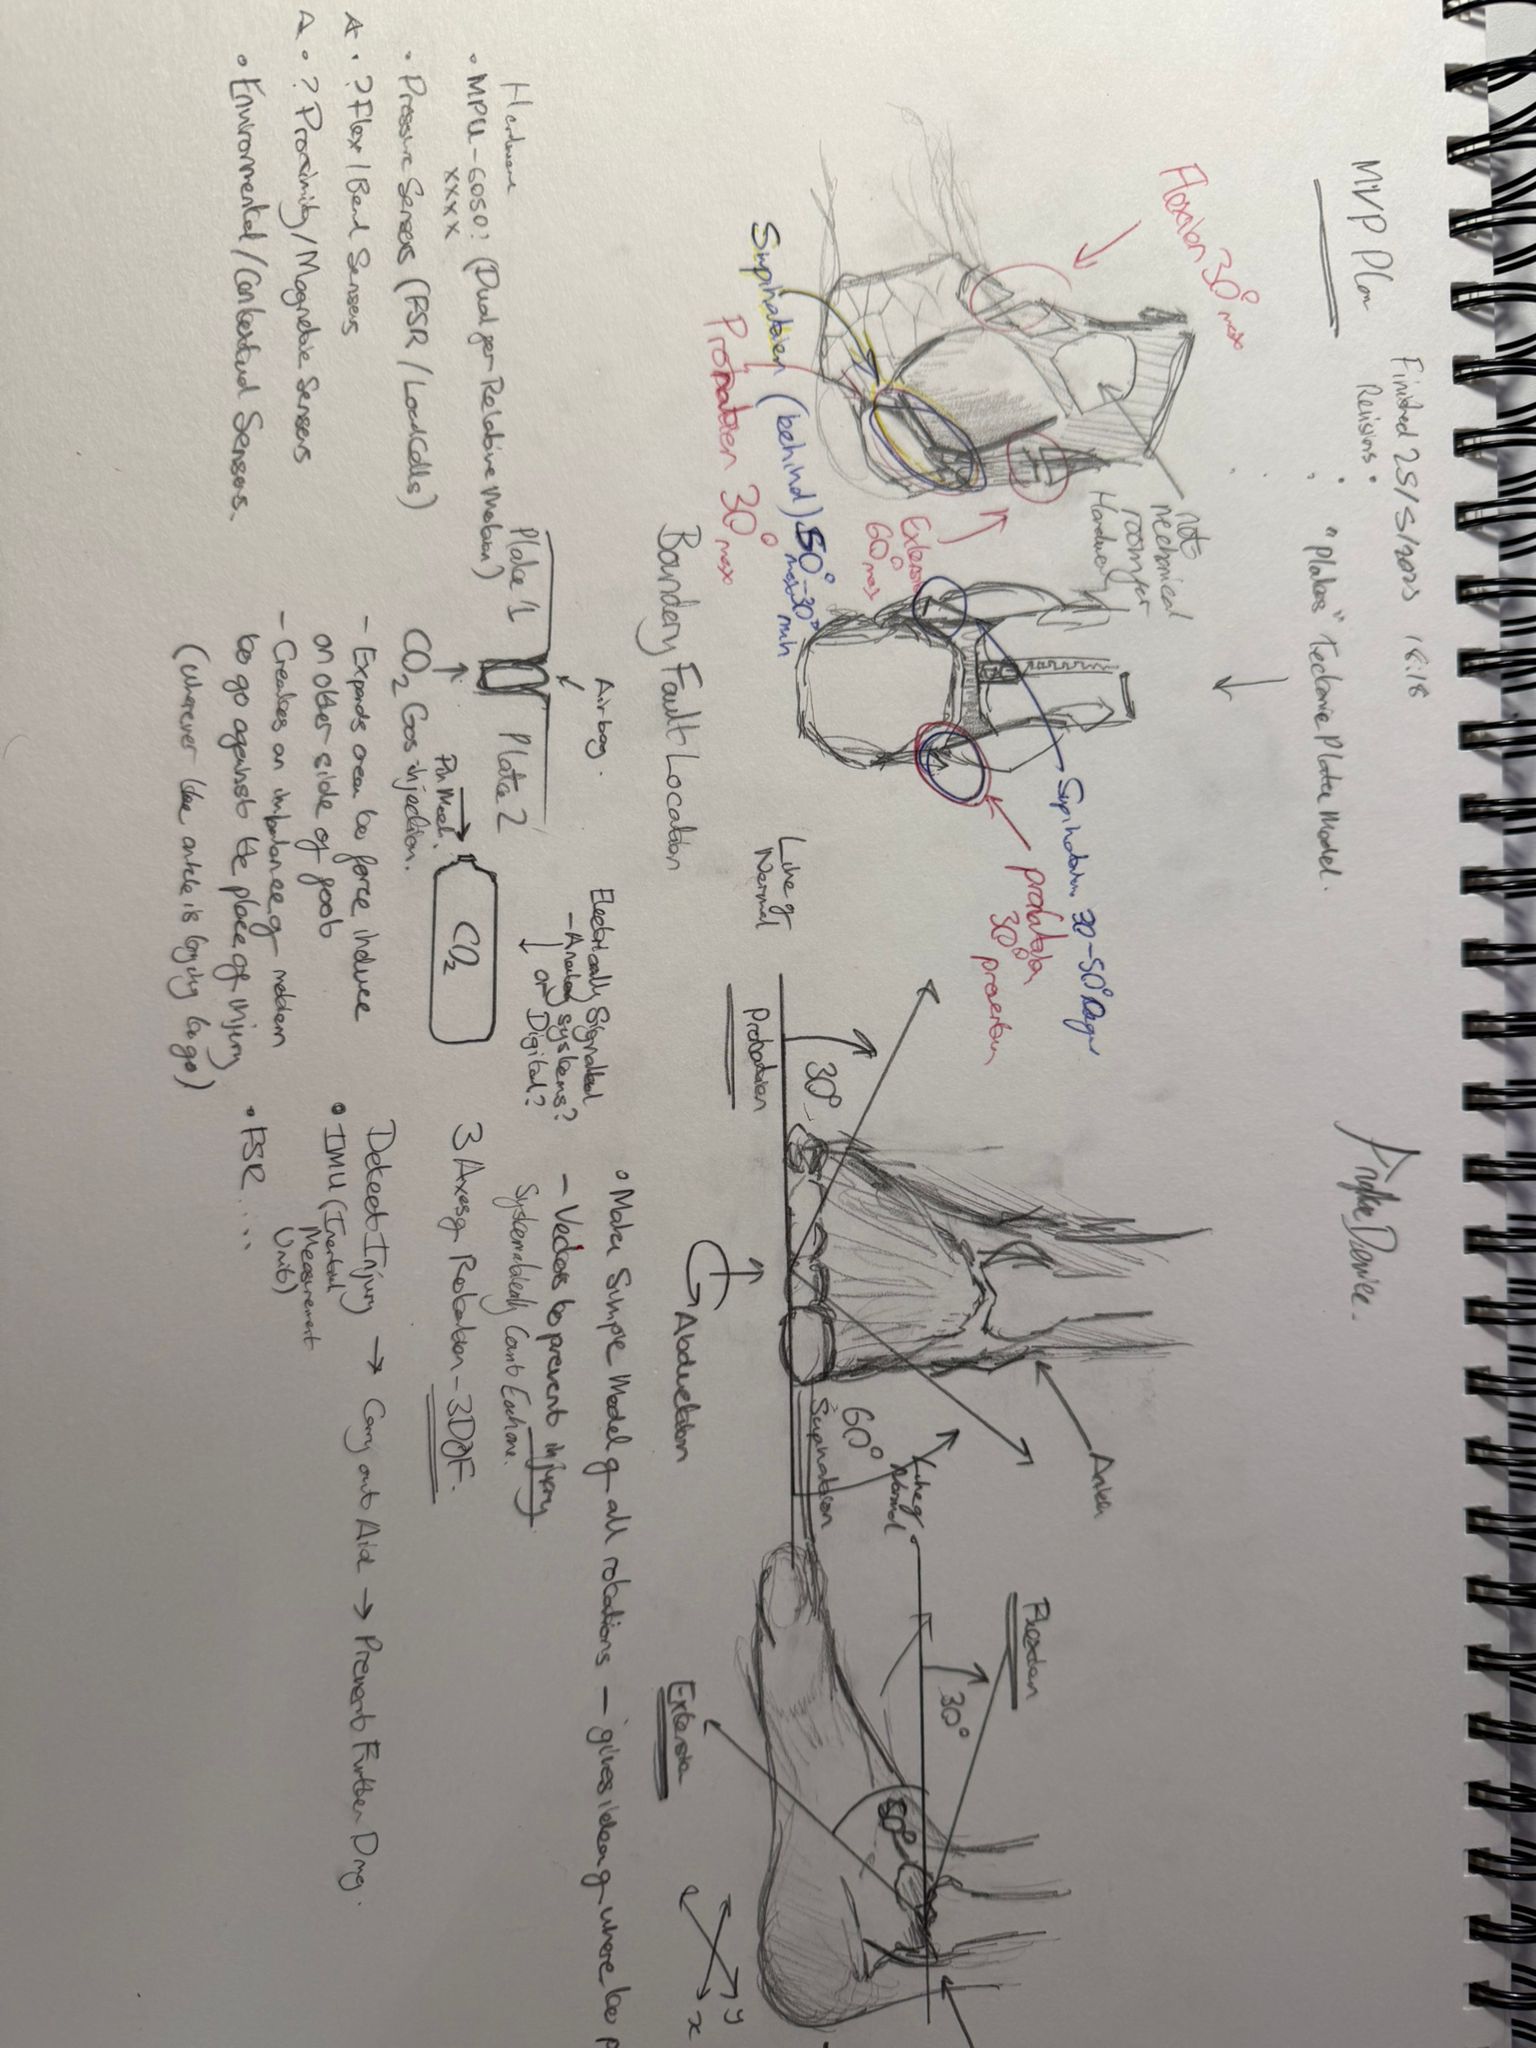 MVP Plan
Finished 25/5/2025 18:18
Revisions
"plates" Tectonic Plate Model.
Ankle Device.
Flexion 30° max
not
mechanical
room for
Hardware
Extension
60° max
Supination (behind) 50° - 30°
max min
Pronation 30° max
Supination 30-50° Degr
pronation
30° prevention
Boundery Fault Location
Line of
Normal
Pronation
30°
Abduction
60°
Supination
Ankle
Line of
Normal
Flexion
30°
50°
Extension
y
x
Hardware
• MPU-6050? (Dual for Relative Motion)
xxxx
• Pressure Sensors (FSR / Load Cells)
A • ? Flex / Bend Sensors
A • ? Proximity / Magnetic Sensors
• Environmental / Contextual Sensors.
Plate 1
Plate 2
Airbag.
CO2 Gas injection.
Pin Mech.
CO2
- Expands area to force induce
on other side of foot
- Creates an imbalance of motion
to go against the place of injury
(wherever the ankle is trying to go)
Electrically Signalled
- Analog systems?
or Digital?
• Make Simple Model of all rotations - gives idea of where to
- Vectors to prevent injury
Systematically Count Each one.
3 Axes of Rotation - 3DOF.
Detect Injury → Carry out Aid → Prevent Further Dmg.
• IMU (Inertial
Measurement
Unit)
• FSR ...